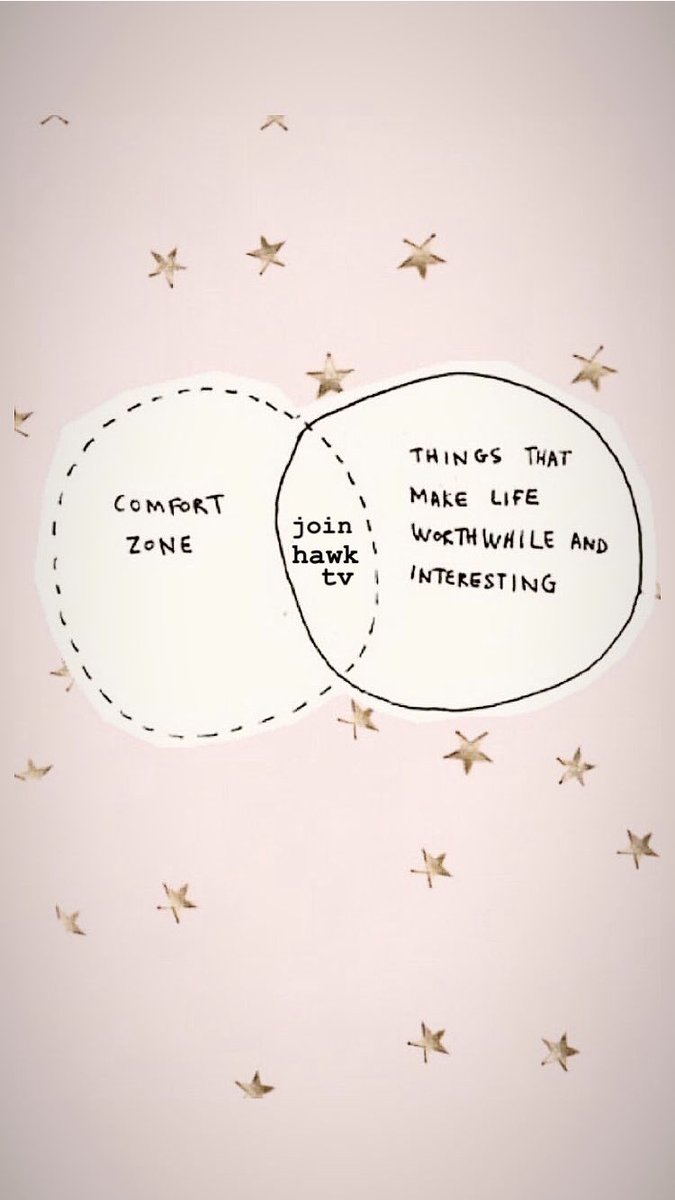 COMFORT
ZONE
join
hawk
tv
THINGS THAT
MAKE LIFE
WORTHWHILE AND
INTERESTING